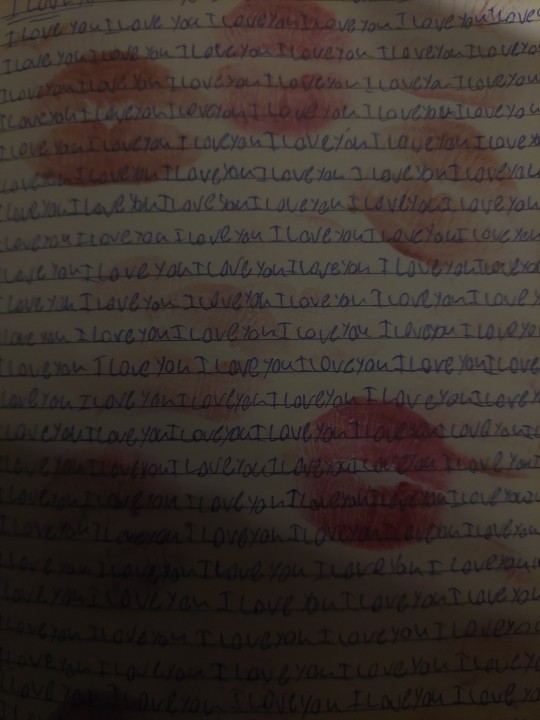 I Love
I Love You I Love You I Love You I Love You I Love
I Love You I Love You I Love You I Love You I Love You
I Love You I Love You I Love You I Love You I Love You
I Love You I Love You I Love You I Love You I Love You
I Love You I Love You I Love You I Love You I Love You
Love You I Love You I Love You I Love You I Love You
I Love You I Love You I Love You I Love You I Love You
I Love You I Love You I Love You I Love You I Love You
I Love You I Love You I Love You I Love You I Love You
I Love You I Love You I Love You I Love You I Love Y
Love You I Love You I Love You I Love You I Love You
I Love You I Love You I Love You I Love You I Love You I Love
Love You I Love You I Love You I Love You I Love
Love You I Love You I Love You I Love You I Love You
Love You I Love You I Love You I Love You I Love You
I Love You I Love You I Love You I Love You I Love You
I Love You I Love You I Love You I Love You I Love You
Love You I Love You I Love You I Love You I Love You
Love You I Love You I Love You I Love You I Love You
I Love You I Love You I Love You I Love You I Love
I Love You I Love You I Love You I Love You I Love Y
I Love You I Love You I Love You I Love You I Love Y